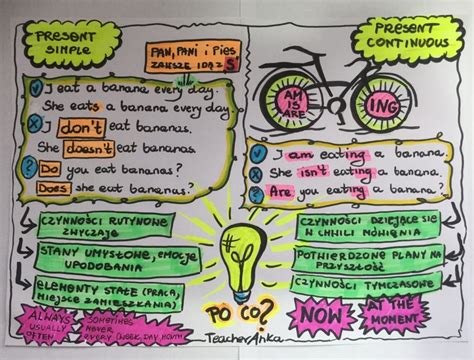 PRESENT
SIMPLE
PAN, PANI i PIES
ZAWSZE IDĄ Z S!
√ I eat a banana every day
She eats a banana every day
X I don't eat bananas.
She doesn't eat bananas.
? Do you eat bananas?
Does she eat bananas?
CZYNNOŚCI RUTYNOWE
ZWYCZAJE
STANY UMYSŁOWE, EMOCJE
UPODOBANIA
ELEMENTY STAŁE (PRACA,
MIEJSCE ZAMIESZKANIA)
ALWAYS
USUALLY
OFTEN
SOMETIMES
NEVER
EVERY (WEEK, DAY, MONTH)
PO CO?
TeacherAnka
PRESENT
CONTINUOUS
AM
IS
ARE
ING
√ I am eating a banana.
X She isn't eating a banana.
? Are you eating a banana?
CZYNNOŚCI DZIEJĄCE SIĘ
W CHWILI MÓWIENIA
POTWIERDZONE PLANY NA
PRZYSZŁOŚĆ
CZYNNOŚCI TYMCZASOWE
NOW
AT THE
MOMENT